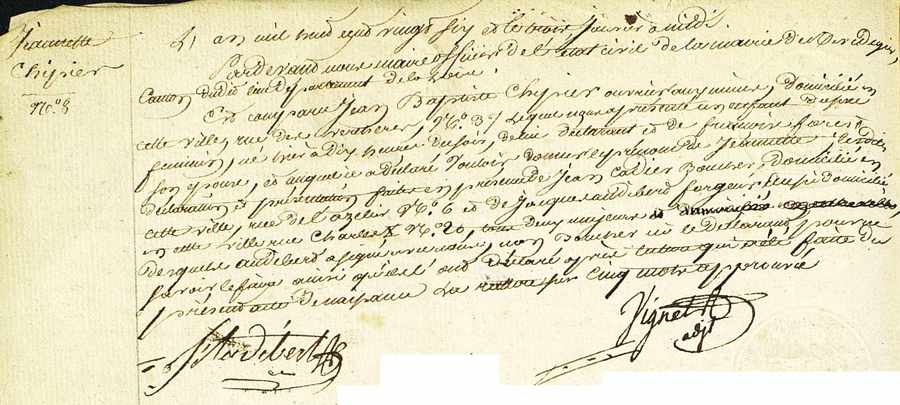 Jeannette
Chipier
N.° 8
L'an mil huit cent vingt six et le trois janvier à midi.
Pardevant nous maire officier de l'état civil de la mairie de Rivedegier,
Canton dudit lieu Département de la Loire.
Est comparu Jean Baptiste Chipier ouvrier aux mines, domicilié en
cette ville, rue des verchères, N.° 37 Lequel nous a présenté un enfant du sexe
féminin, né hier à Dix heures du soir, de lui déclarant et de françoise forest
son épouse, et auquel il a déclaré vouloir donner le prénom de Jeannette, lesdites
déclaration et présentation faites en présence de Jean Cadier Boucher, domicilié en
cette ville, rue de N.° 6 et de Jacques audebert forgeur aussi domicilié
en cette ville rue Charles X N.° 20, tous Deux majeurs
Desquels audebert a signé avec nous, non Boucher ni le Déclarant pour ne
savoir le faire ainsi qu'ils l'ont déclaré après lecture qui a été faite du
présent acte de naissance La rature sur Cinq mots approuvé
Audebert
Vignet
adjt